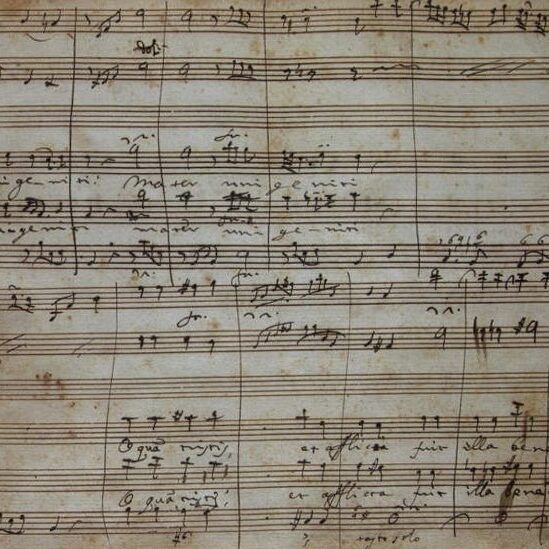 igeniti: Mater unigeniti
ageniti mater unigeniti
O quã tristis, et afflicta fuit illa bene
O quã tristis, et afflicta fuit illa bene
tasto solo